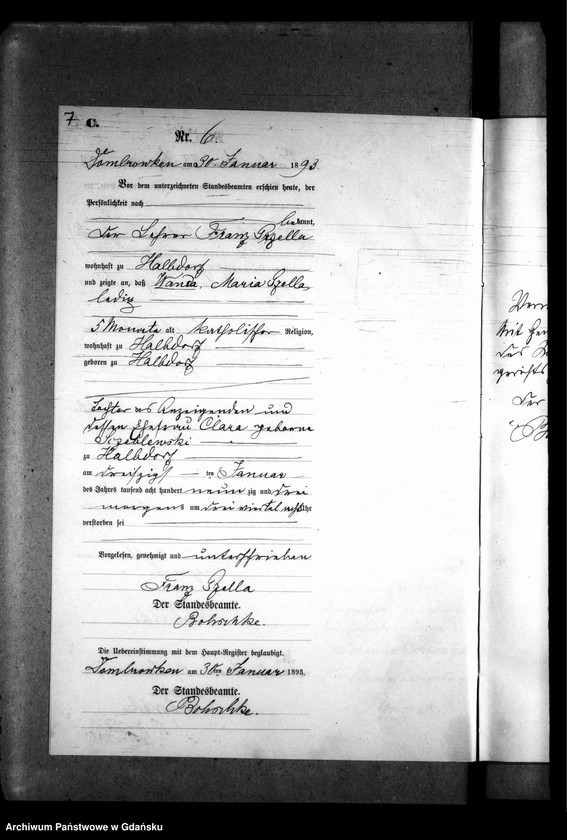 7
C.
Nr. 6.
Dombrowken am 30. Januar 1893.
Vor dem unterzeichneten Standesbeamten erschien heute, der
Persönlichkeit nach
bekannt,
der Lehrer Franz Szella
wohnhaft zu Halbdorf
und zeigte an, daß Wanda, Maria Szella,
ledig
5 Monate alt katholischer Religion,
wohnhaft zu Halbdorf
geboren zu Halbdorf
Tochter des Anzeigenden und
dessen Ehefrau Clara geborne
zu Halbdorf
am dreißigsten Januar
des Jahres tausend acht hundert neunzig und drei
morgens um drei viertel Uhr
verstorben sei
Vorgelesen, genehmigt und unterschrieben
Franz Szella
Der Standesbeamte.
Bohschke.
Die Uebereinstimmung mit dem Haupt-Register beglaubigt.
Dombrowken am 30ten Januar 1893.
Der Standesbeamte.
Bohschke.
mit
des
gerichts
Der
Archiwum Państwowe w Gdańsku